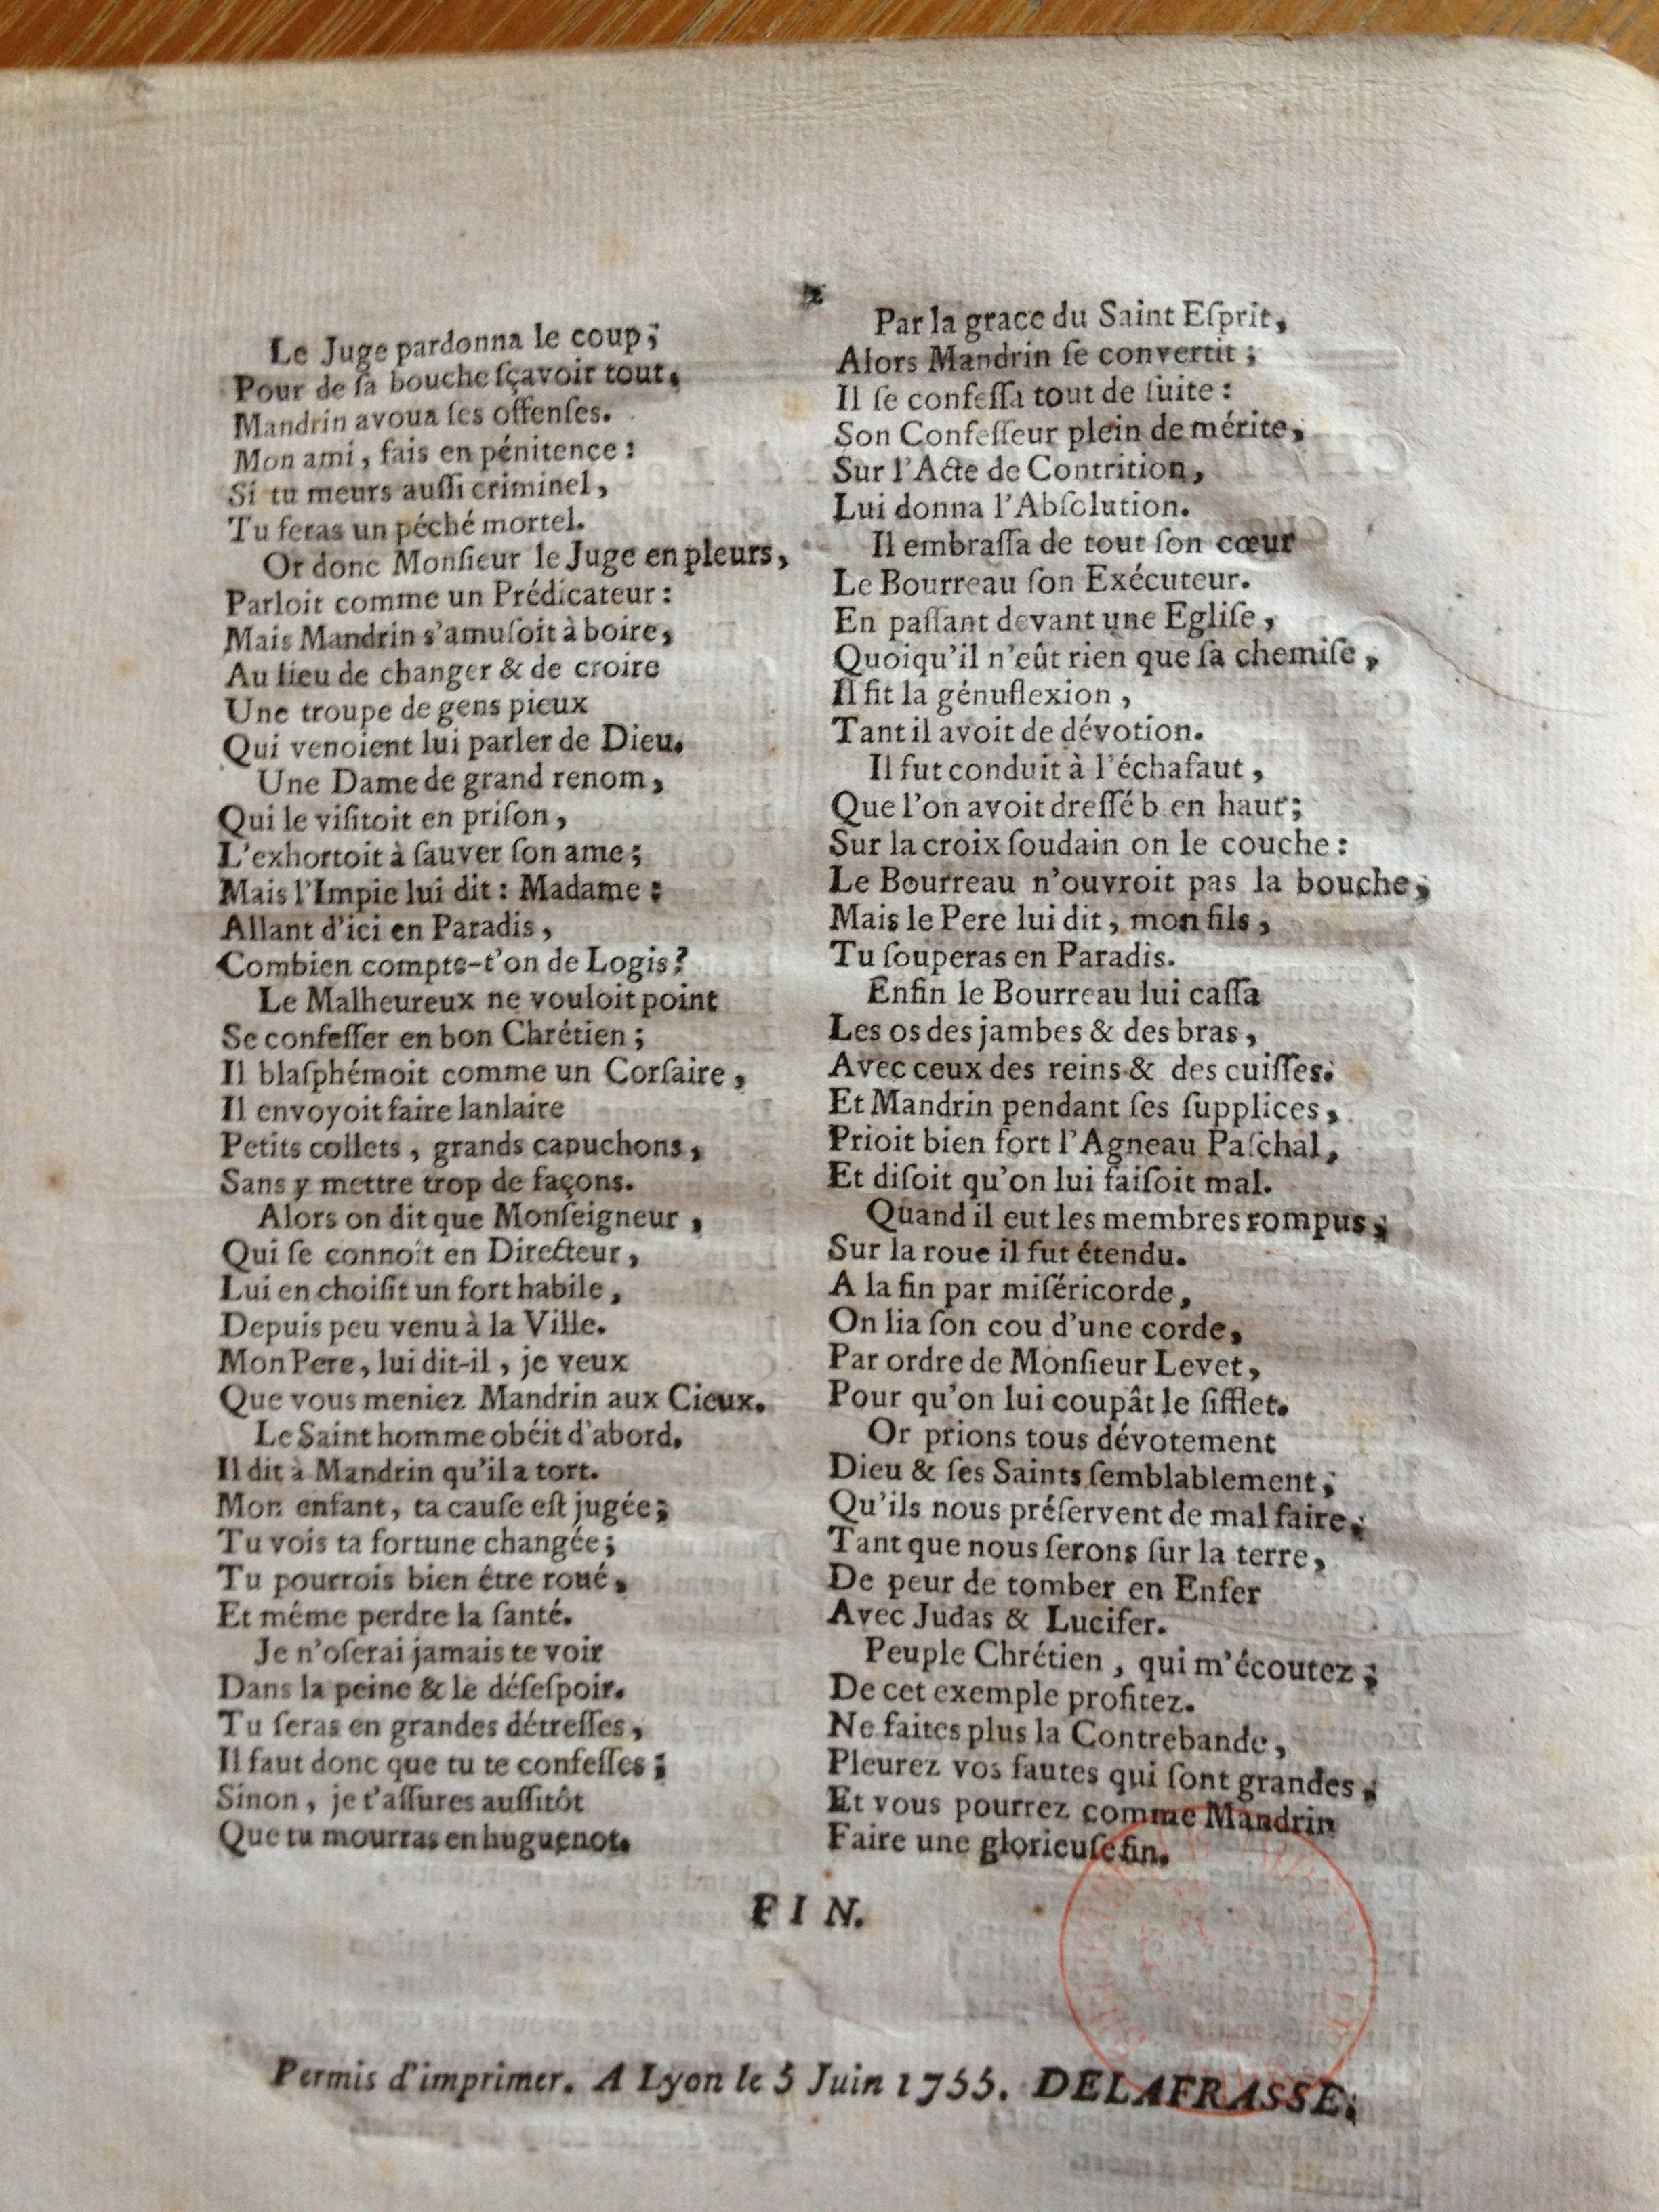 Le Juge pardonna le coup;
Pour de ſa bouche ſçavoir tout,
Mandrin avoua ſes offenſes.
Mon ami, fais en pénitence:
Si tu meurs auſſi criminel,
Tu feras un péché mortel.
Or donc Monſieur le Juge en pleurs,
Parloit comme un Prédicateur:
Mais Mandrin s'amuſoit à boire,
Au lieu de changer & de croire
Une troupe de gens pieux
Qui venoient lui parler de Dieu.
Une Dame de grand renom,
Qui le viſitoit en priſon,
L'exhortoit à ſauver ſon ame;
Mais l'Impie lui dit: Madame:
Allant d'ici en Paradis,
Combien compte-t'on de Logis?
Le Malheureux ne vouloit point
Se confeſſer en bon Chrétien;
Il blaſphémoit comme un Corſaire,
Il envoyoit faire lanlaire
Petits collets, grands capuchons,
Sans y mettre trop de façons.
Alors on dit que Monſeigneur,
Qui ſe connoît en Directeur,
Lui en choiſit un fort habile,
Depuis peu venu à la Ville.
Mon Pere, lui dit-il, je veux
Que vous meniez Mandrin aux Cieux.
Le Saint homme obéit d'abord.
Il dit à Mandrin qu'il a tort.
Mon enfant, ta cauſe eſt jugée;
Tu vois ta fortune changée;
Tu pourrois bien être roué,
Et même perdre la ſanté.
Je n'oſerai jamais te voir
Dans la peine & le déſeſpoir.
Tu ſeras en grandes détreſſes,
Il faut donc que tu te confeſſes;
Sinon, je t'aſſures auſſitôt
Que tu mourras en huguenot.
Par la grace du Saint Eſprit,
Alors Mandrin ſe convertit;
Il ſe confeſſa tout de ſuite:
Son Confeſſeur plein de mérite,
Sur l'Acte de Contrition,
Lui donna l'Abſolution.
Il embraſſa de tout ſon cœur
Le Bourreau ſon Exécuteur.
En paſſant devant une Egliſe,
Quoiqu'il n'eût rien que ſa chemiſe,
Il fit la génuflexion,
Tant il avoit de dévotion.
Il fut conduit à l'échafaut,
Que l'on avoit dreſſé b en haut;
Sur la croix ſoudain on le couche:
Le Bourreau n'ouvroit pas la bouche,
Mais le Pere lui dit, mon fils,
Tu ſouperas en Paradis.
Enfin le Bourreau lui caſſa
Les os des jambes & des bras,
Avec ceux des reins & des cuiſſes.
Et Mandrin pendant ſes ſupplices,
Prioit bien fort l'Agneau Paſchal,
Et diſoit qu'on lui faiſoit mal.
Quand il eut les membres rompus,
Sur la roue il fut étendu.
A la fin par miſéricorde,
On lia ſon cou d'une corde,
Par ordre de Monſieur Levet,
Pour qu'on lui coupât le ſifflet.
Or prions tous dévotement
Dieu & ſes Saints ſemblablement,
Qu'ils nous préſervent de mal faire,
Tant que nous ſerons ſur la terre,
De peur de tomber en Enfer
Avec Judas & Lucifer.
Peuple Chrétien, qui m'écoutez;
De cet exemple profitez.
Ne faites plus la Contrebande,
Pleurez vos fautes qui ſont grandes,
Et vous pourrez comme Mandrin
Faire une glorieuſe fin.
FIN.
Permis d'imprimer. A Lyon le 5 Juin 1755. DELAFRASSE.